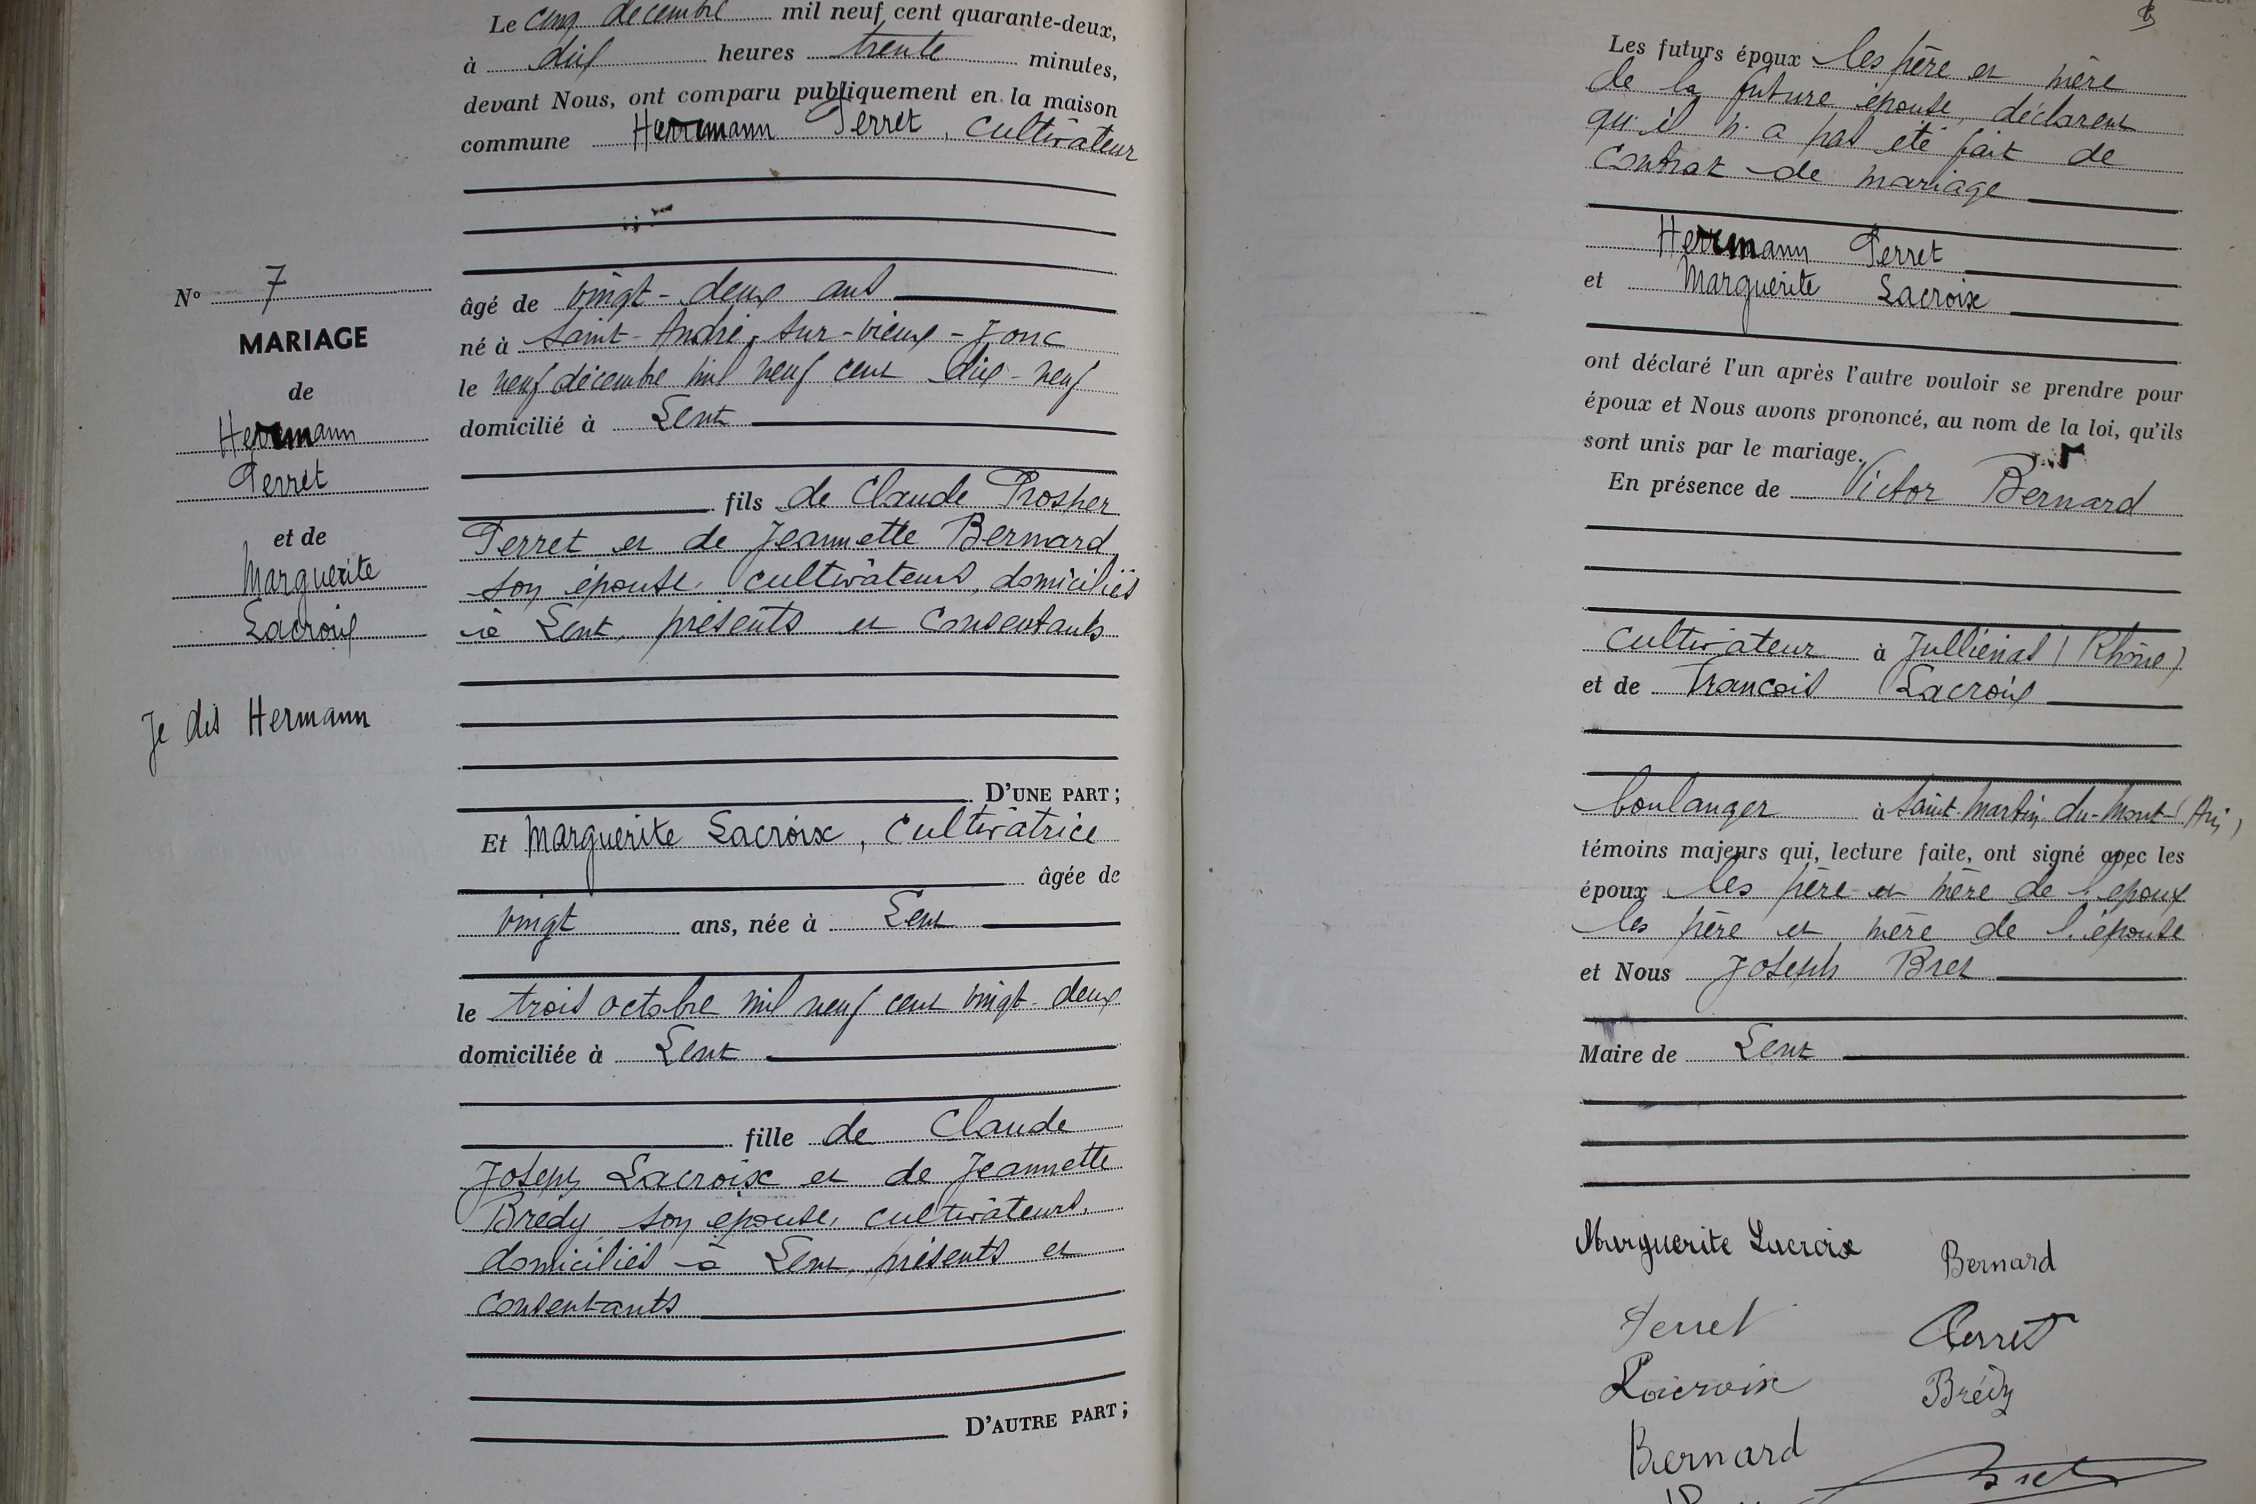 Le cinq décembre mil neuf cent quarante-deux,
à dix heures trente minutes,
devant Nous, ont comparu publiquement en la maison
commune Hermann Perret, cultivateur
âgé de vingt-deux ans
né à Saint-André-sur-Vieux-Jonc
le neuf décembre mil neuf cent dix-neuf
domicilié à Lent
fils de Claude Prosper
Perret et de Jeannette Bernard
son épouse, cultivateurs, domiciliés
à Lent, présents et consentants
D'UNE PART ;
Et Marguerite Lacroix, cultivatrice
âgée de
vingt ans, née à Lent
le trois octobre mil neuf cent vingt-deux
domiciliée à Lent
fille de Claude
Joseph Lacroix et de Jeannette
Brédy, son épouse, cultivateurs,
domiciliés à Lent, présents et
consentants
D'AUTRE PART ;
No 7
MARIAGE
de
Hermann
Perret
et de
Marguerite
Lacroix
Je dis Hermann
Les futurs époux les père et mère
de la future épouse, déclarent
qu'il n'a pas été fait de
contrat de mariage
Hermann Perret
et Marguerite Lacroix
ont déclaré l'un après l'autre vouloir se prendre pour
époux et Nous avons prononcé, au nom de la loi, qu'ils
sont unis par le mariage.
En présence de Victor Bernard
cultivateur à Julliénas (Rhône)
et de François Lacroix
boulanger à Saint-Martin-du-Mont (Ain)
témoins majeurs qui, lecture faite, ont signé avec les
époux les père et mère de l'époux
les père et mère de l'épouse
et Nous Joseph Bret
Maire de Lent
Marguerite Lacroix Bernard
Perret Perret
Lacroix Brédy
Bernard Bret